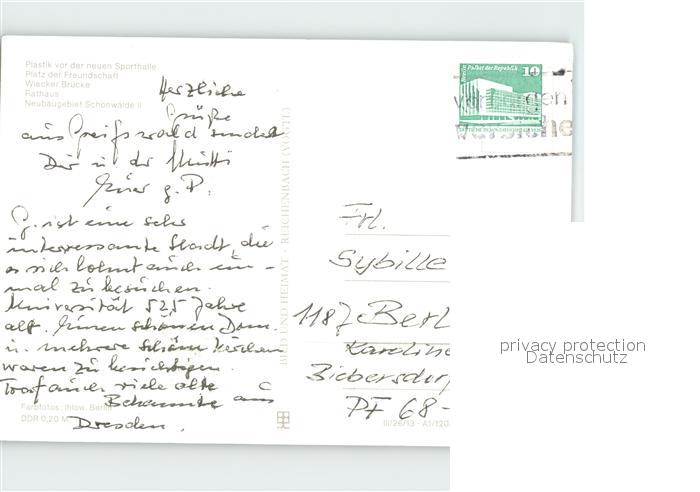 Plastik vor der neuen Sporthalle
Platz der Freundschaft
Wiecker Brücke
Rathaus
Neubaugebiet Schönwalde II
Herzliche
Grüße
aus Greifswald sendet
Dir u. der Mutti
Euer g. P.
G. ist eine sehr
interessante Stadt, die
es sich lohnt auch ein-
mal zu besuchen.
Universität 525 Jahre
alt. Einen schönen Dom
u. mehrere schöne Kirchen
waren zu besichtigen.
Traf auch viele alte
Bekannte aus
Dresden.
Farbfotos: Ihlow, Berlin
DDR 0,20 M
BILD UND HEIMAT · REICHENBACH (VOGTL)
Berlin Palast der Republik 10
DEUTSCHE DEMOKRATISCHE REPUBLIK
Frl.
Sybille
1187 Berl
Karoline
Biebersdorf
PF 68-
III/26/13 A1/120
privacy protection
Datenschutz